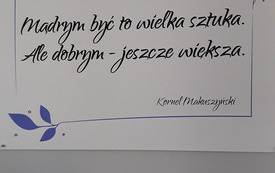 Mądrym być to wielka sztuka.
Ale dobrym - jeszcze większa.
Kornel Makuszyński